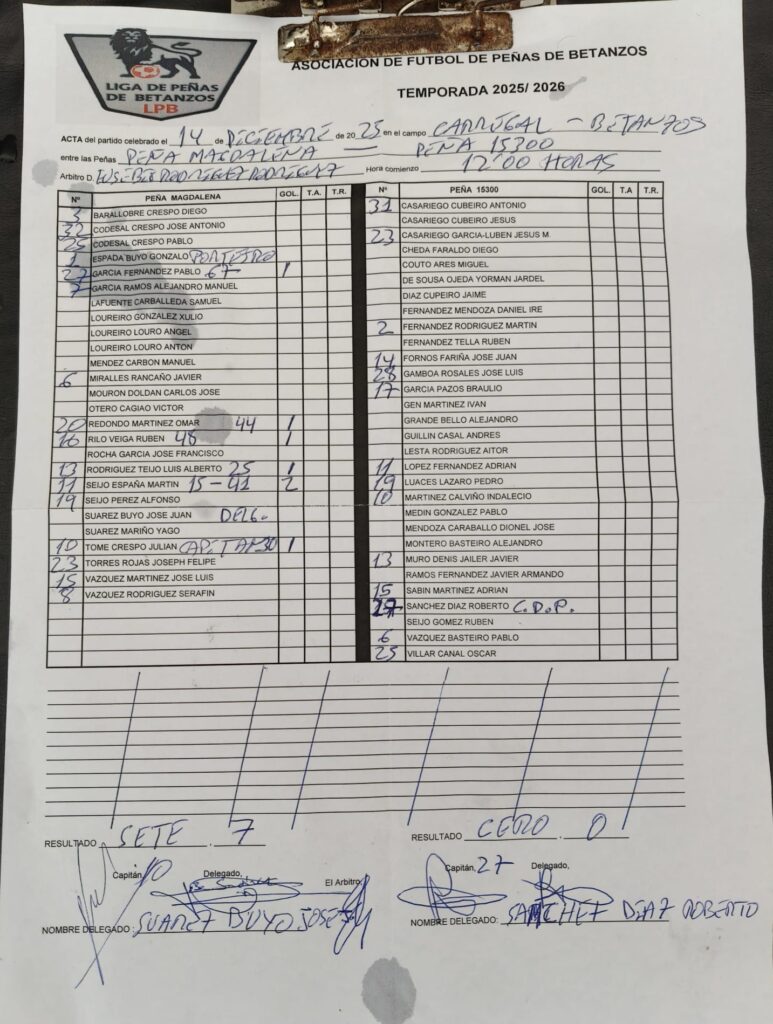 LIGA DE PEÑAS
DE BETANZOS
LPB
ASOCIACION DE FUTBOL DE PEÑAS DE BETANZOS
TEMPORADA 2025/ 2026
ACTA del partido celebrado el 14 de DICIEMBRE de 2025 en el campo CARREGAL - BETANZOS
entre las Peñas PEÑA MAGDALENA — PEÑA 15300
Arbitro D. EUSEBIO RODRIGUEZ RODRIGUEZ Hora comienzo 12'00 HORAS
Nº PEÑA MAGDALENA GOL. T.A. T.R.
3 BARALLOBRE CRESPO DIEGO
32 CODESAL CRESPO JOSE ANTONIO
25 CODESAL CRESPO PABLO
1 ESPADA BUYO GONZALO PORTEIRO
27 GARCIA FERNANDEZ PABLO 67 1
7 GARCIA RAMOS ALEJANDRO MANUEL
LAFUENTE CARBALLEDA SAMUEL
LOUREIRO GONZALEZ XULIO
LOUREIRO LOURO ANGEL
LOUREIRO LOURO ANTON
MENDEZ CARBON MANUEL
6 MIRALLES RANCAÑO JAVIER
MOURON DOLDAN CARLOS JOSE
OTERO CAGIAO VICTOR
20 REDONDO MARTINEZ OMAR 44 1
16 RILO VEIGA RUBEN 48 1
ROCHA GARCIA JOSE FRANCISCO
13 RODRIGUEZ TEIJO LUIS ALBERTO 25 1
11 SEIJO ESPAÑA MARTIN 15-41 2
19 SEIJO PEREZ ALFONSO
SUAREZ BUYO JOSE JUAN DELG.
SUAREZ MARIÑO YAGO
10 TOME CRESPO JULIAN CAPITAN 30 1
23 TORRES ROJAS JOSEPH FELIPE
15 VAZQUEZ MARTINEZ JOSE LUIS
8 VAZQUEZ RODRIGUEZ SERAFIN
Nº PEÑA 15300 GOL. T.A T.R.
31 CASARIEGO CUBEIRO ANTONIO
CASARIEGO CUBEIRO JESUS
23 CASARIEGO GARCIA-LUBEN JESUS M.
CHEDA FARALDO DIEGO
COUTO ARES MIGUEL
DE SOUSA OJEDA YORMAN JARDEL
DIAZ CUPEIRO JAIME
FERNANDEZ MENDOZA DANIEL IRE
2 FERNANDEZ RODRIGUEZ MARTIN
FERNANDEZ TELLA RUBEN
14 FORNOS FARIÑA JOSE JUAN
28 GAMBOA ROSALES JOSE LUIS
17 GARCIA PAZOS BRAULIO
GEN MARTINEZ IVAN
GRANDE BELLO ALEJANDRO
GUILLIN CASAL ANDRES
LESTA RODRIGUEZ AITOR
11 LOPEZ FERNANDEZ ADRIAN
19 LUACES LAZARO PEDRO
10 MARTINEZ CALVIÑO INDALECIO
MEDIN GONZALEZ PABLO
MENDOZA CARABALLO DIONEL JOSE
MONTERO BASTEIRO ALEJANDRO
13 MURO DENIS JAILER JAVIER
RAMOS FERNANDEZ JAVIER ARMANDO
15 SABIN MARTINEZ ADRIAN
27 SANCHEZ DIAZ ROBERTO C.D.P.
SEIJO GOMEZ RUBEN
6 VAZQUEZ BASTEIRO PABLO
25 VILLAR CANAL OSCAR
RESULTADO SETE . 7
RESULTADO CERO . 0
Capitán, 10 Delegado, El Arbitro,
Capitán, 27 Delegado,
NOMBRE DELEGADO : SUAREZ BUYO JOSE
NOMBRE DELEGADO: SANCHEZ DIAZ ROBERTO